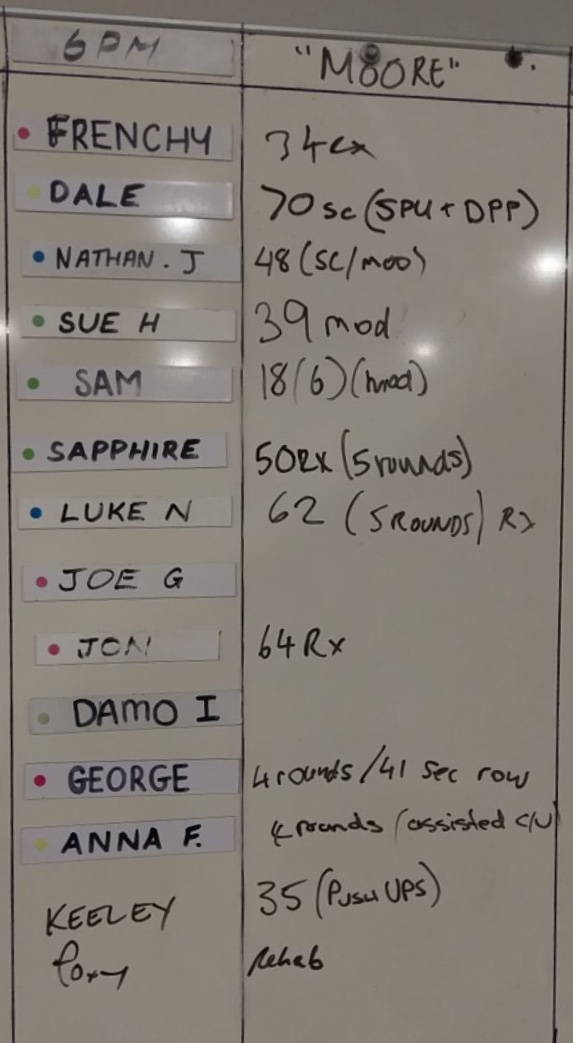 6PM "MOORE"
FRENCHY 34 Rx
DALE 70 sc (SPU + DPP)
NATHAN. J 48 (SC/mod)
SUE H 39 mod
SAM 18 (6) (mod)
SAPPHIRE 50 RX (5 rounds)
LUKE N 62 (5 ROUNDS) Rx
JOE G
JON 64 Rx
DAMO I
GEORGE 4 rounds / 41 sec row
ANNA F. 4 rounds (assisted c/u)
KEELEY 35 (PUSH UPS)
Rehab